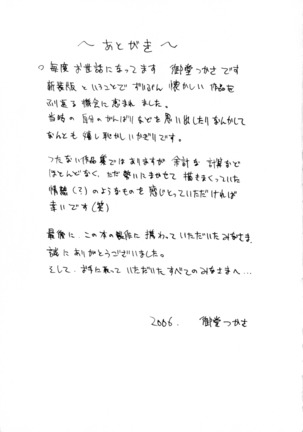 ～あとがき～
毎度お世話になってます 御堂つかさです
新装版ということでずいぶん懐かしい作品を
ふり返る機会に恵まれました。
当時の自分のがんばりなどを思い出したりなんかして
なんとも嬉し恥かしいかぎりです。
つたない作品集ではありますが 余計な計算など
ほとんどなく、ただ勢いにまかせて描きまくっていた
情熱(?)のようなものを感じとっていただければ
幸いです(笑)
最後に、この本の製作に携わっていただいたみなさま、
誠にありがとうございました。
そして、お手に取っていただいたすべてのみなさまへ…
2006. 御堂つかさ